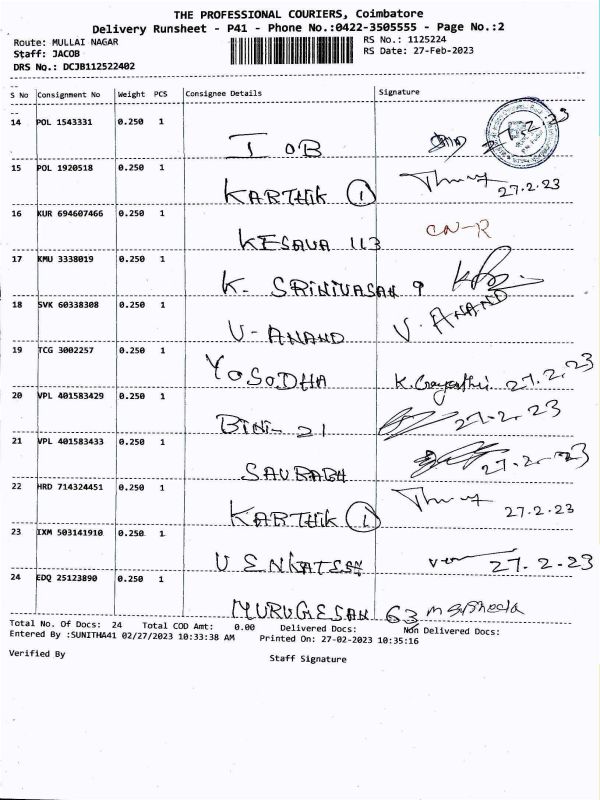 THE PROFESSIONAL COURIERS, Coimbatore
Delivery Runsheet - P41 - Phone No.:0422-3505555 - Page No.:2
Route: MULLAI NAGAR
RS No.: 1125224
Staff: JACOB
RS Date: 27-Feb-2023
DRS No.: DCJB112522402
S No Consignment No Weight PCS Consignee Details Signature
14 POL 1543331 0.250 1
IOB 27.2.23
15 POL 1920518 0.250 1
KARTHIK 1 27.2.23
16 KUR 694607466 0.250 1
KESAVA 113 CN-R
17 KMU 3338019 0.250 1
K. SRINIVASAN 9
18 SVK 60338308 0.250 1
V-ANAND V. ANAND
19 TCG 3002257 0.250 1
YOSODHA K. Gayathri 27.2.23
20 VPL 401583429 0.250 1
BINI- 21 27.2.23
21 VPL 401583433 0.250 1
SAURABH 27.2.23
22 HRD 714324451 0.250 1
KARTHIK 1 27.2.23
23 IXM 503141910 0.250 1
VENKATESH 27.2.23
24 EDQ 25123890 0.250 1
MURUGESAN 63
Total No. Of Docs: 24 Total COD Amt: 0.00 Delivered Docs: Non Delivered Docs:
Entered By :SUNITHA41 02/27/2023 10:33:38 AM Printed On: 27-02-2023 10:35:16
Verified By Staff Signature